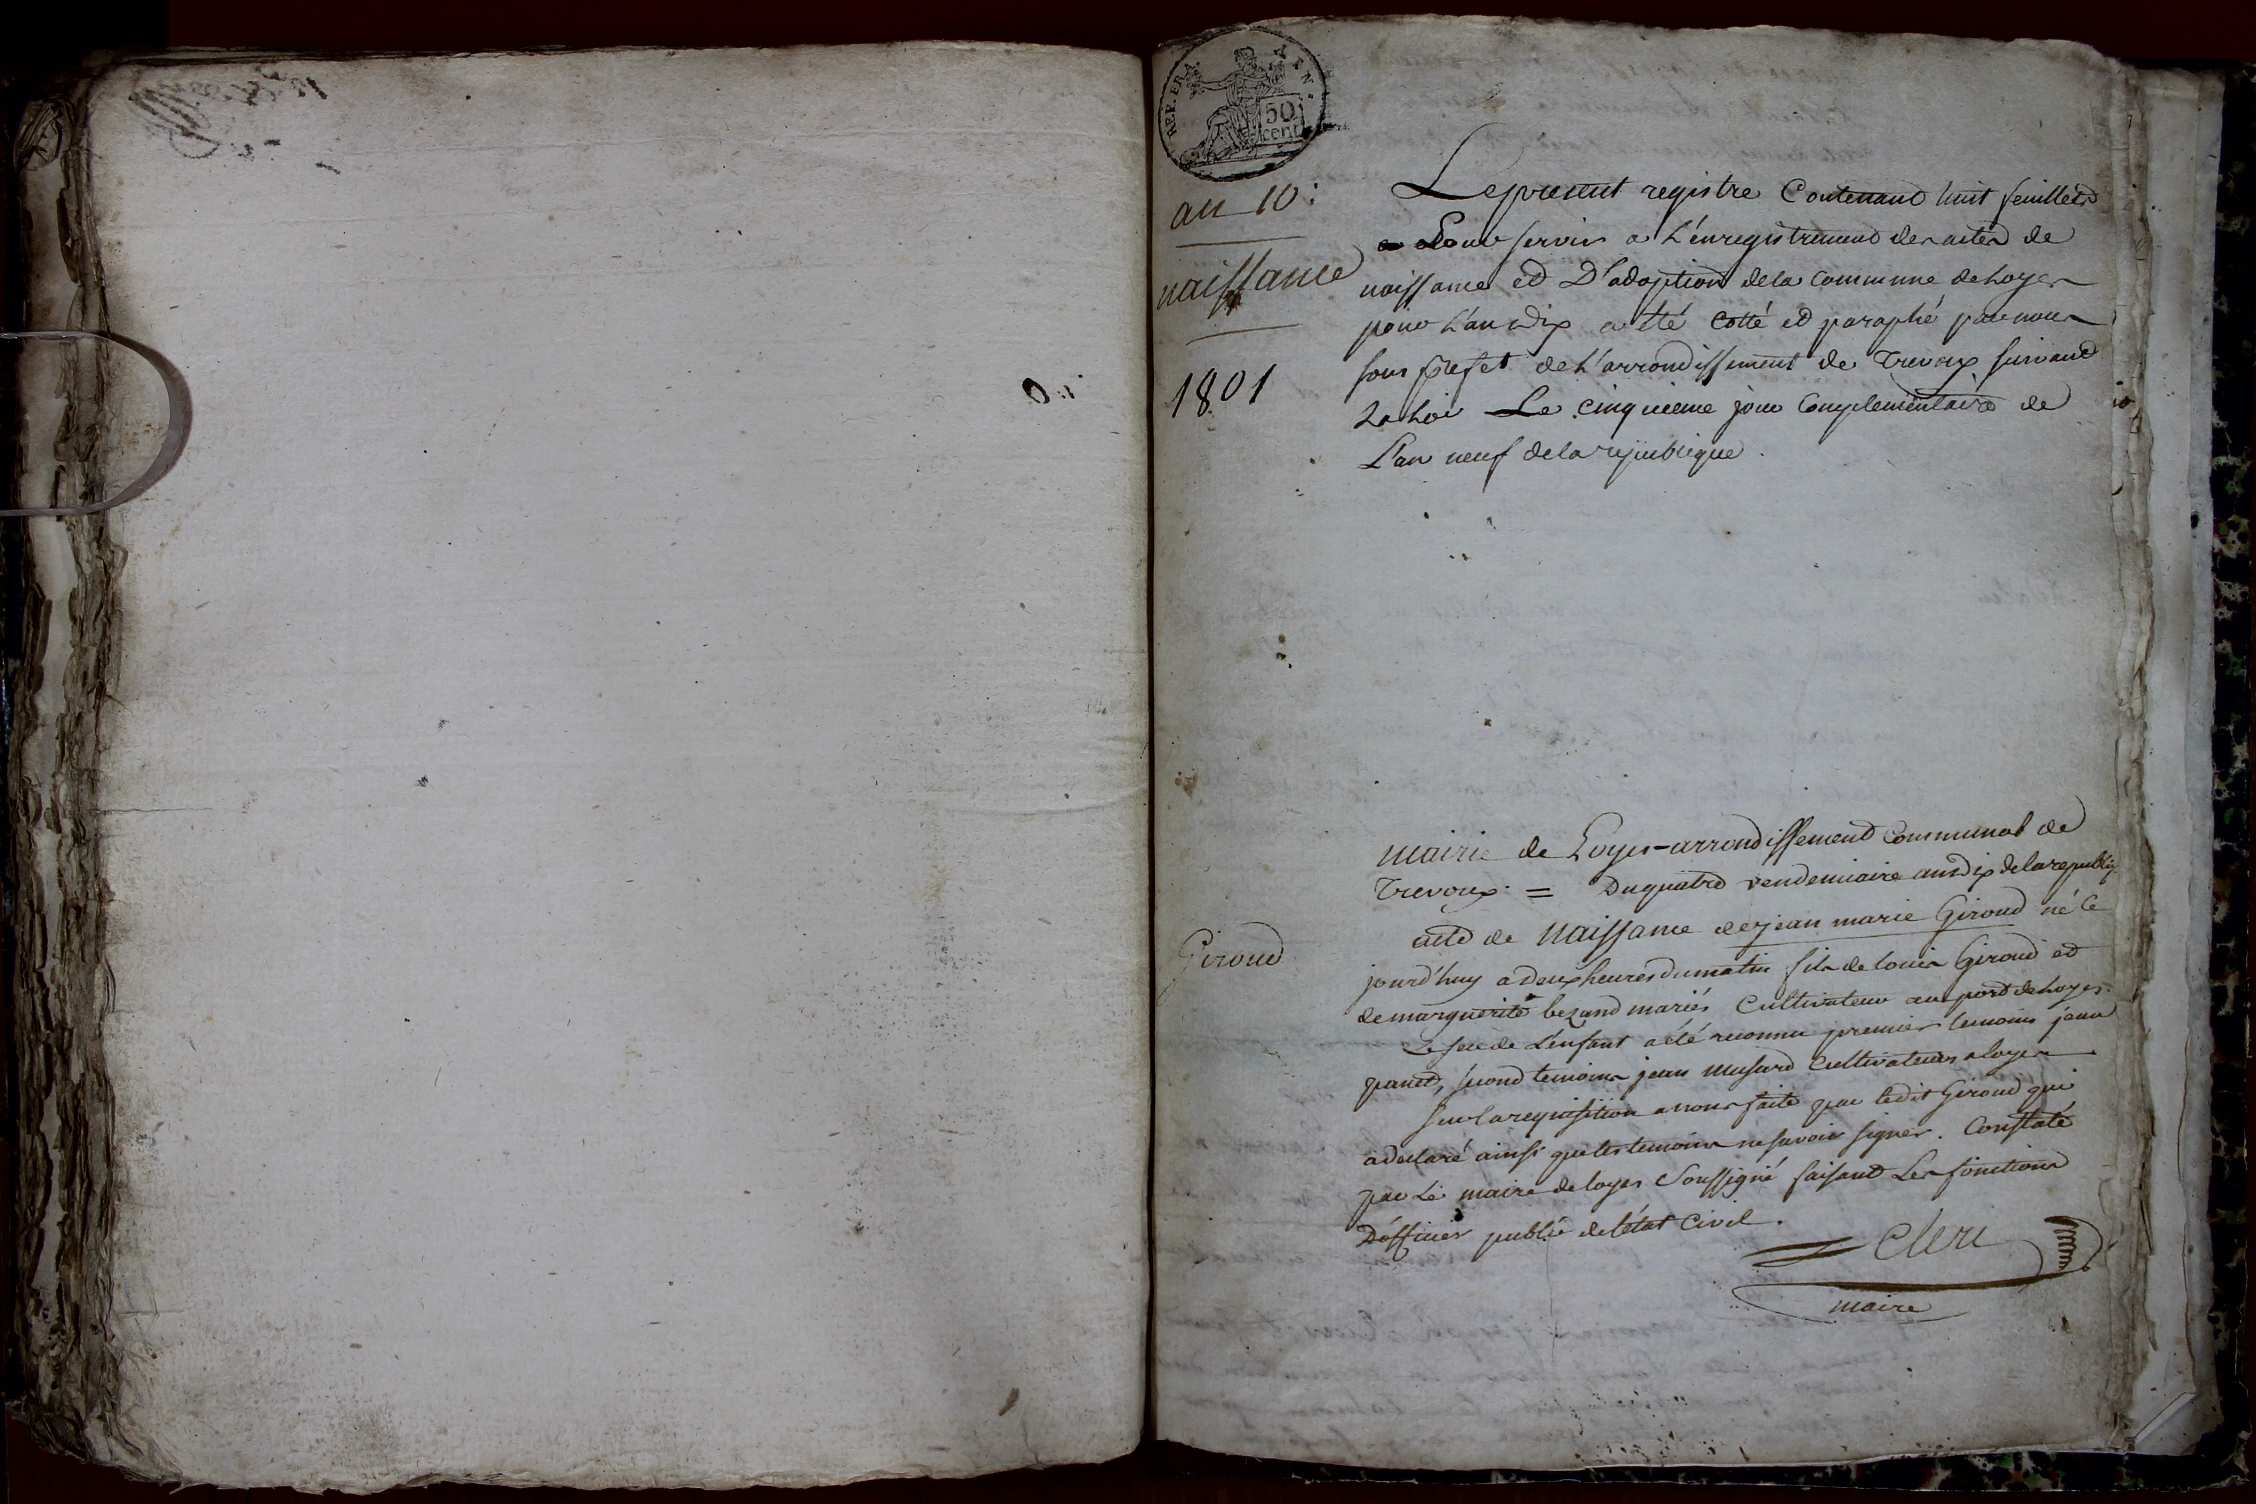 REP. FRA.
AIN.
50
cent.
an 10:
naissance
1801
Le present registre Contenant huit feuillets
Pour servir a L'enregistrement des actes de
naissance et D'adoption de la Commune de Loyes
pour L'an dix a été Cotté et paraphé par nous
sous prefet de L'arrondissement de Trevoux suivant
La Loi Le cinquieme jour Complementaire de
L'an neuf de la republique.
Mairie de Loyes-arrondissement Communal de
Trevoux. = Du quatre vendemiaire an dix de la republiq
Giroud
acte de Naissance de jean marie Giroud né Ce
jourd'huy a deux heures du matin fils de louis Giroud et
de marguerite bezand mariés Cultivateur au port de Loyes.
Le sexe de L'enfant a été reconnu premier temoins jean
panet, second temoins jean Musard Cultivateurs a loyes
Sur la requisition a nous faite par ledit Giroud qui
a declaré ainsi que les temoins ne savoir signer. Constaté
par Le maire de loyes Soussigné faisant Les fonctions
D'officier public de L'état Civil.
Clere
maire